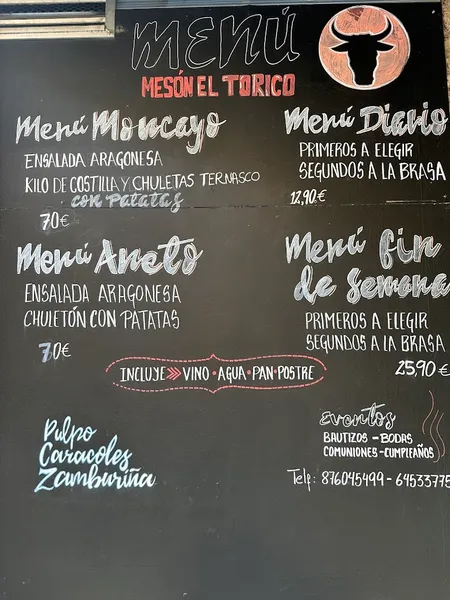 MENÚ
MESÓN EL TORICO
Menú Moncayo
ENSALADA ARAGONESA
KILO DE COSTILLA Y CHULETAS TERNASCO
CON PATATAS
70€
Menú Aneto
ENSALADA ARAGONESA
CHULETÓN CON PATATAS
70€
Menú Diario
PRIMEROS A ELEGIR
SEGUNDOS A LA BRASA
12,90€
Menú fin
de semana
PRIMEROS A ELEGIR
SEGUNDOS A LA BRASA
25,90€
INCLUYE » VINO · AGUA · PAN · POSTRE
Pulpo
Caracoles
Zamburiña
Eventos
BAUTIZOS - BODAS
COMUNIONES - CUMPLEAÑOS
Telf: 876045499 - 64533775